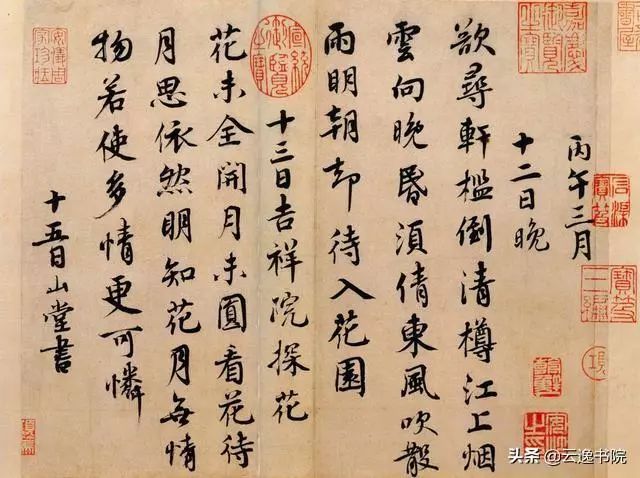 丙午三月
十二日晚
欲尋軒檻倒清樽江上烟
雲向晚昏須倩東風吹散
雨明朝却待入花園
十三日吉祥院探花
花未全開月未圓看花待
月思依然明知花月無情
物若使多情更可憐
十五日山堂書
乾隆御覽之寶
嘉慶御覽之寶
头条 @云逸书院